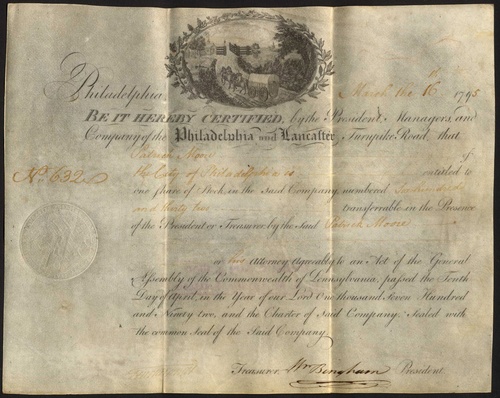 Philadelphia March the 16 1795
BE IT HEREBY CERTIFIED, by the President, Managers and
Company of the Philadelphia and Lancaster Turnpike Road, that
Patrick Moore of
No. 632 the City of Philadelphia is entitled to
one share of Stock in the said Company numbered Six hundred
and thirty two transferrable in the Presence
of the President or Treasurer by the said Patrick Moore
or his Attorney Agreeably to an Act of the General
Assembly of the Commonwealth of Pennsylvania, passed the Tenth
Day of April, in the Year of our Lord One thousand Seven Hundred
and Ninety two, and the Charter of Said Company: Sealed with
the common Seal of the Said Company.
Treasurer. Wm Bingham President.